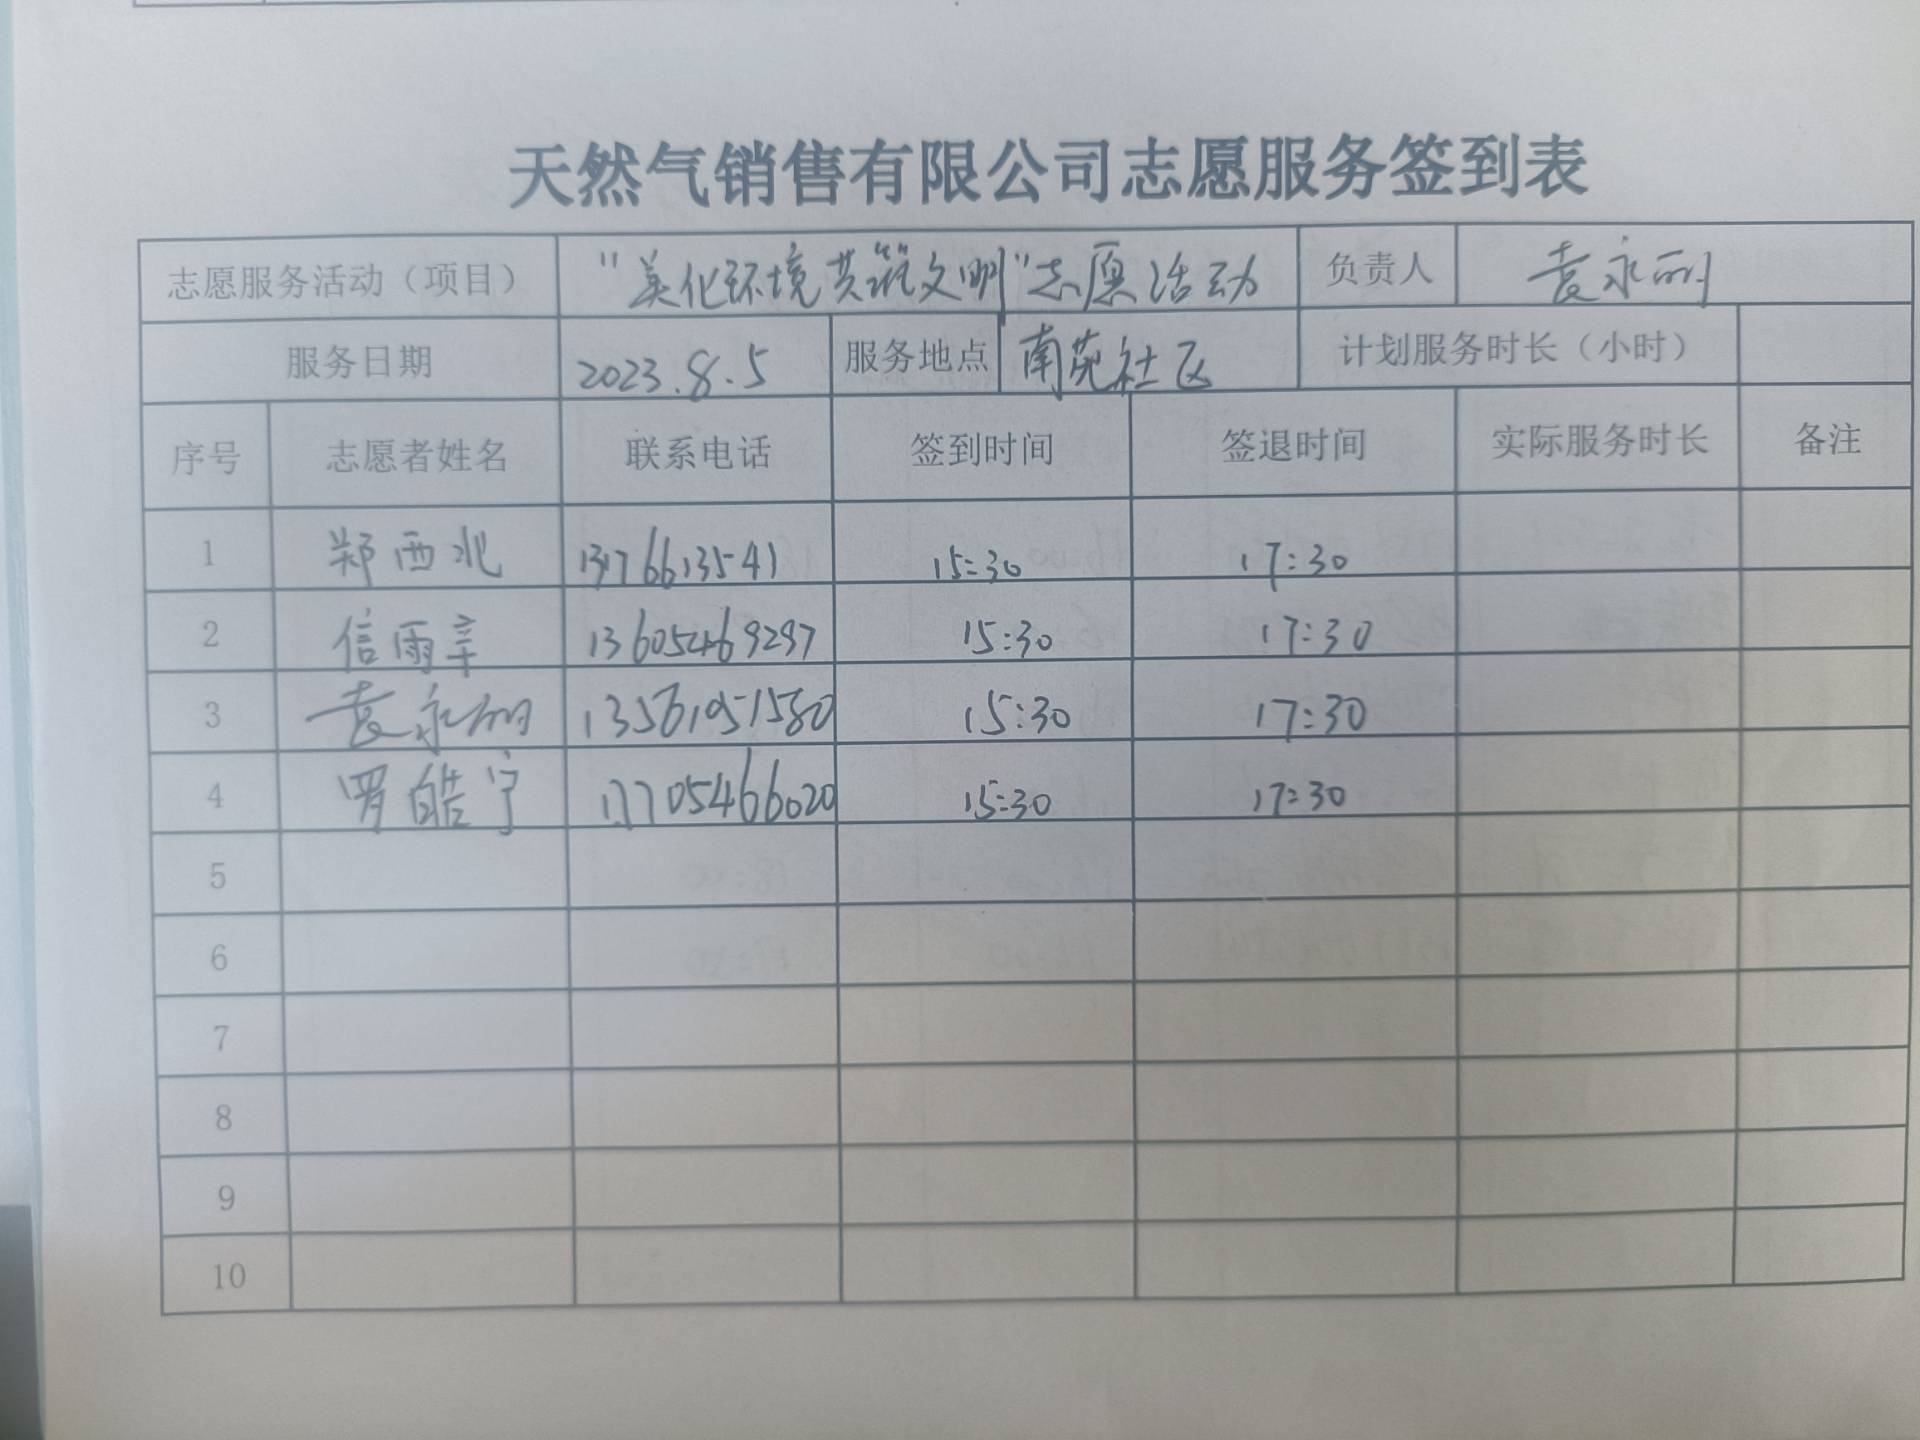 天然气销售有限公司志愿服务签到表
志愿服务活动（项目） "美化环境共筑文明"志愿活动 负责人 袁永丽
服务日期 2023.8.5 服务地点 南苑社区 计划服务时长（小时）
序号 志愿者姓名 联系电话 签到时间 签退时间 实际服务时长 备注
1 郑西北 13176613541 15:30 17:30
2 信雨辛 13605469297 15:30 17:30
3 袁永丽 13561951580 15:30 17:30
4 罗皓宁 17705466020 15:30 17:30
5
6
7
8
9
10